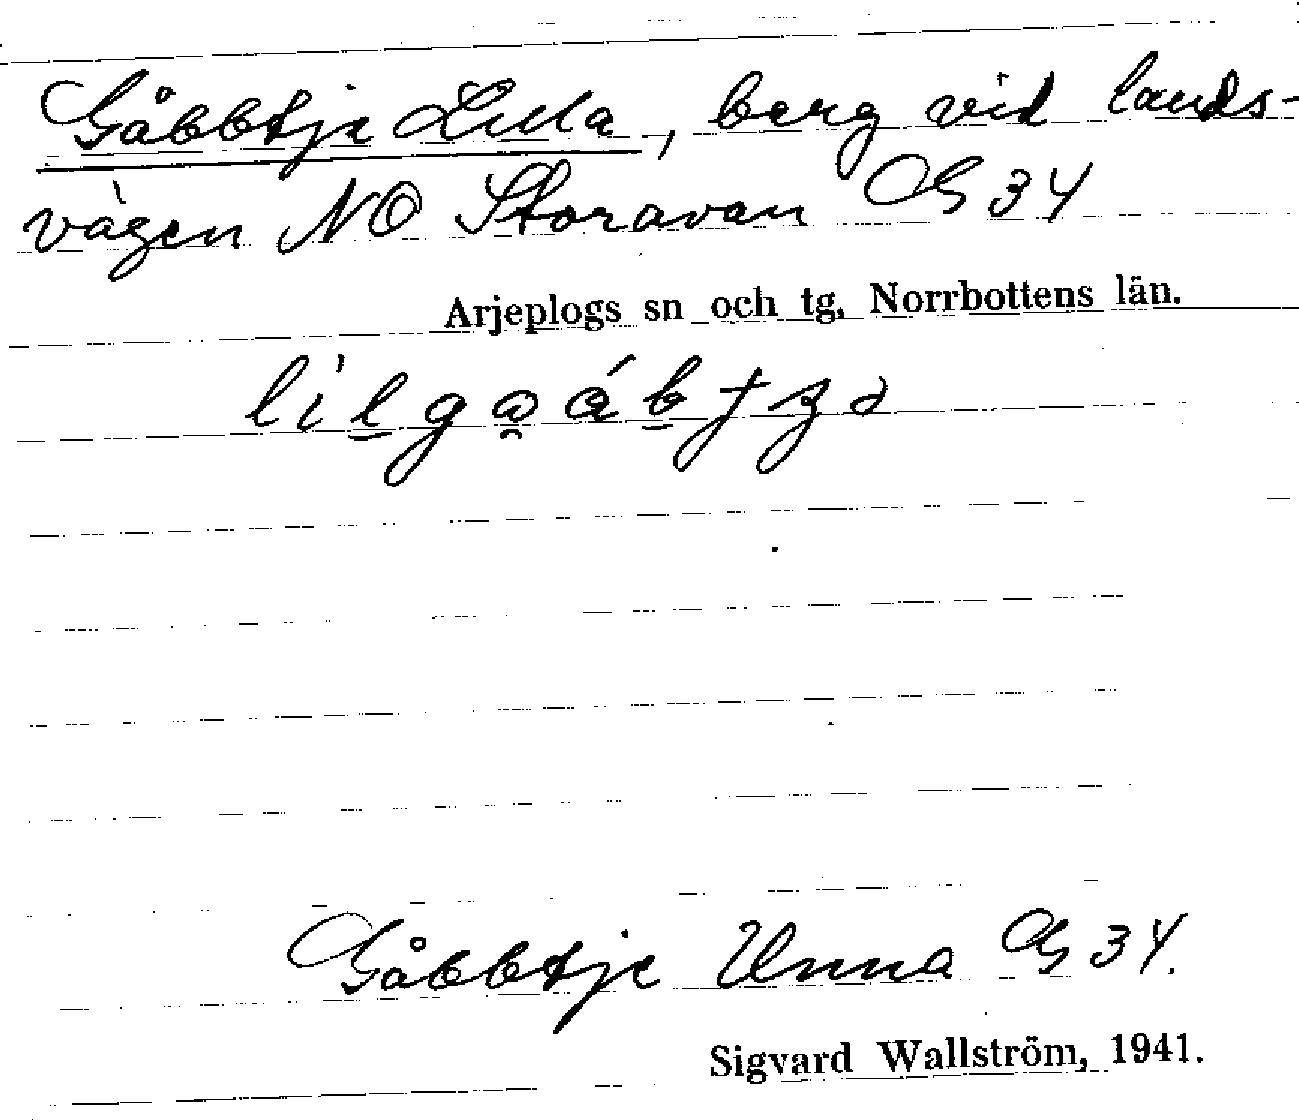 Gåbbtje Lilla, berg vid lands-
vägen NO Storavan G 34
Arjeplogs sn och tg, Norrbottens län.
Gåbbtje Unna G 34.
Sigvard Wallström, 1941.